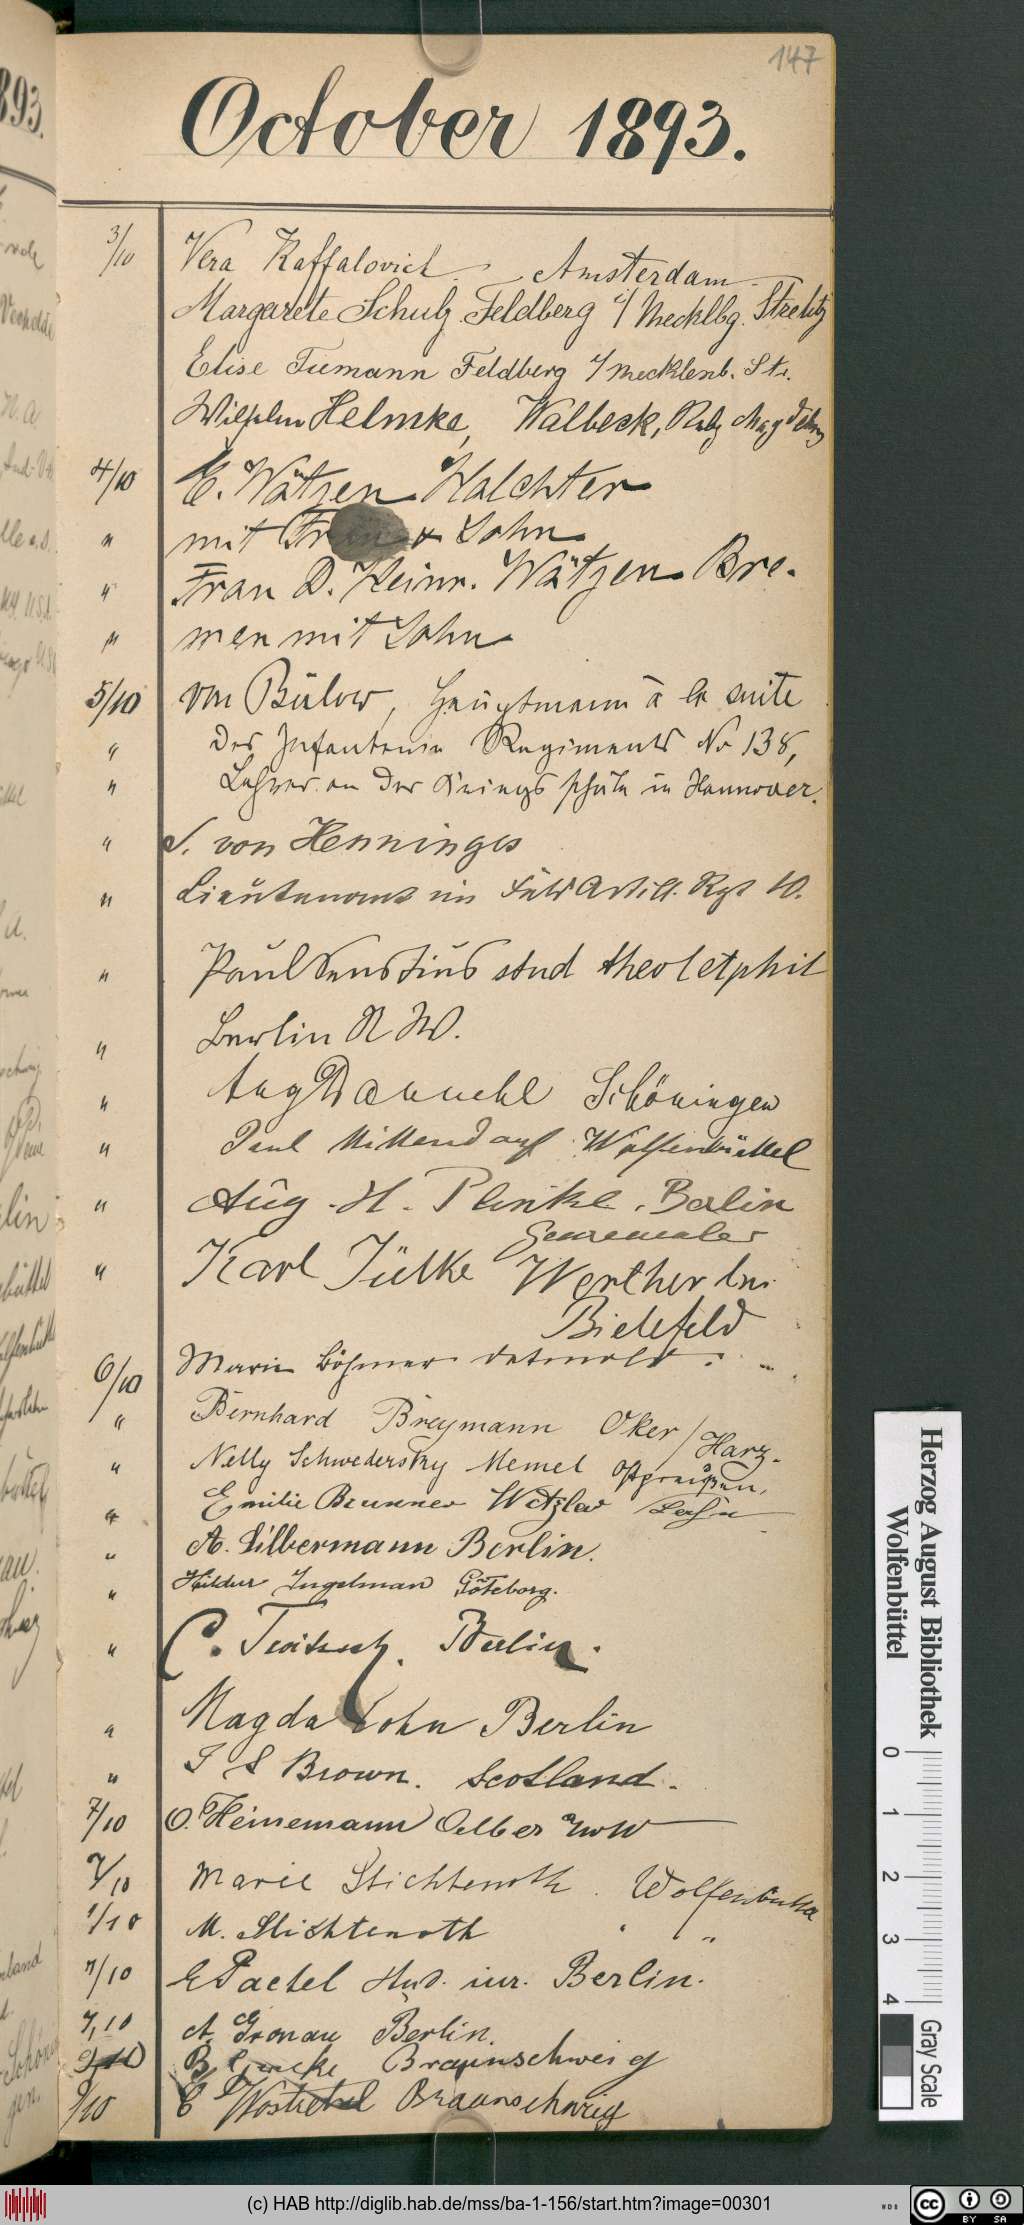 147
October 1893.
3/10 Vera Raffalovich Amsterdam
Margarete Schulz Feldberg i/ Mecklbg. Strelitz
Elise Tiemann Feldberg i/ Mecklenb. Str.
Wilhelm Helmke, Walbeck, Rgbz Magdebrg
4/10 E. Wätzen Halchter
" mit Frau & Sohn
" Frau D. Heinr. Wätzen Bre-
" men mit Sohn
5/10 von Bülow, Hauptmann à la suite
" des Infanterie Regiments No 138,
" Lehrer an der Kriegsschule in Hannover.
" S. von Henninges
" Lieutenant im Feld Artill. Rgt 10.
" Paul stud theol et phil
" Berlin N W.
" Aug Schöningen
" Paul Mittendorf Wolfenbüttel
" Aug. H. Plinke. Berlin
Genremaler
" Karl Jülke Werther bei
Bielefeld
6/10 Marie Böhmer Detmold.
" Bernhard Breymann Oker / Harz.
" Nelly Schwedersky Memel Ostpreußen,
" Emilie Brunner Wetzlar Lahn
" A. Silbermann Berlin.
" Hildur Ingelman Göteborg.
" C. Berlin.
" Magda Cohn Berlin
" J S Brown. Scotland.
7/10 O. Heinemann Oelber
7/10 Marie Stichtenoth. Wolfenbüttel
7/10 M. Stichtenoth " "
7/10 E Paetel stud. iur. Berlin.
7/10 A. Gronau Berlin.
9/10 B Braunschweig
9/10 E Braunschweig
893.
Herzog August Bibliothek
Wolfenbüttel
0 1 2 3 4
Gray Scale
(c) HAB http://diglib.hab.de/mss/ba-1-156/start.htm?image=00301
WDB
cc BY SA